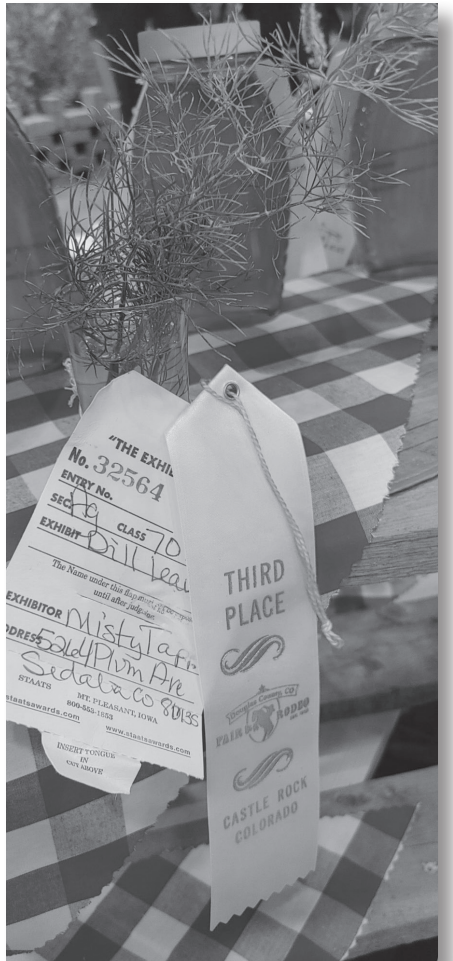 "THE EXHI
No. 32564
ENTRY No.
SEC Ag CLASS 70
EXHIBIT Dill lea
The Name under this flap
until after judging
EXHIBITOR Misty Taf
DDRESS 5264 Plum Ave
Sedalia CO 80135
STAATS MT. PLEASANT, IOWA
800-553-1853
staatsawards.com www.staatsawards.com
INSERT TONGUE
IN
CUT ABOVE
THIRD
PLACE
Douglas County, CO
FAIR & RODEO
CASTLE ROCK
COLORADO